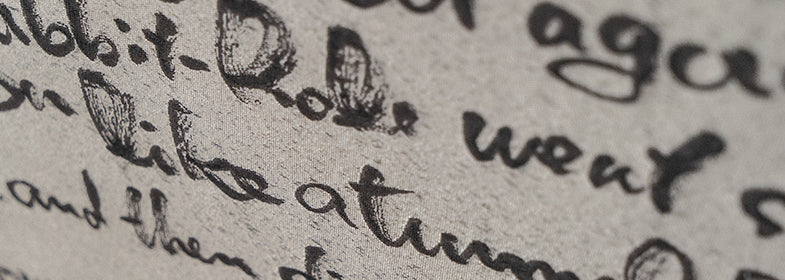 aga
abbit-hole went s
on like a tunne
and then di